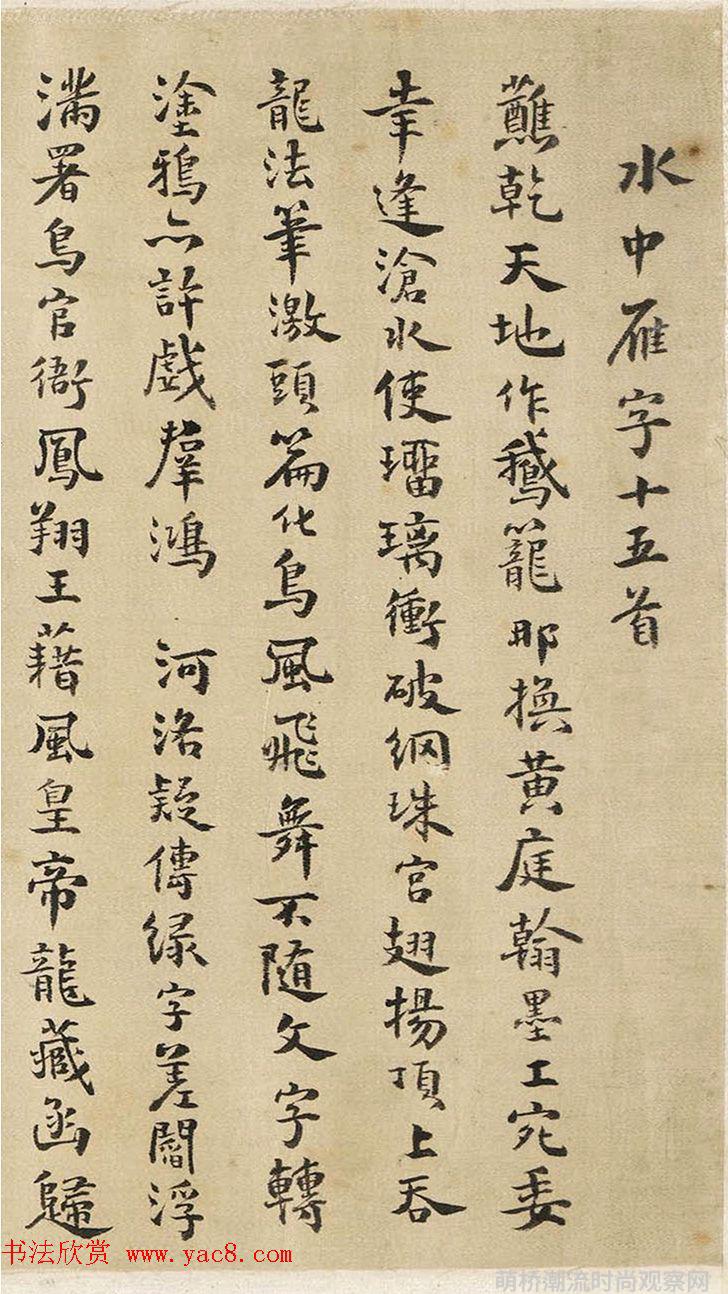 水中雁字十五首
蘸乾天地作鵝籠那換黄庭翰墨工宛委
幸逢滄水使瑠璃衝破網珠宮翅揚頂上吞
龍法筆激頭篇化鳥風飛舞不隨文字轉
塗鴉亦許戲羣鴻 河洛疑傳緑字差閻浮
滿署鳥官衙鳳翔王藉風皇帝龍藏函歸
书法欣赏 www.yac8.com
萌桥潮流时尚观察网